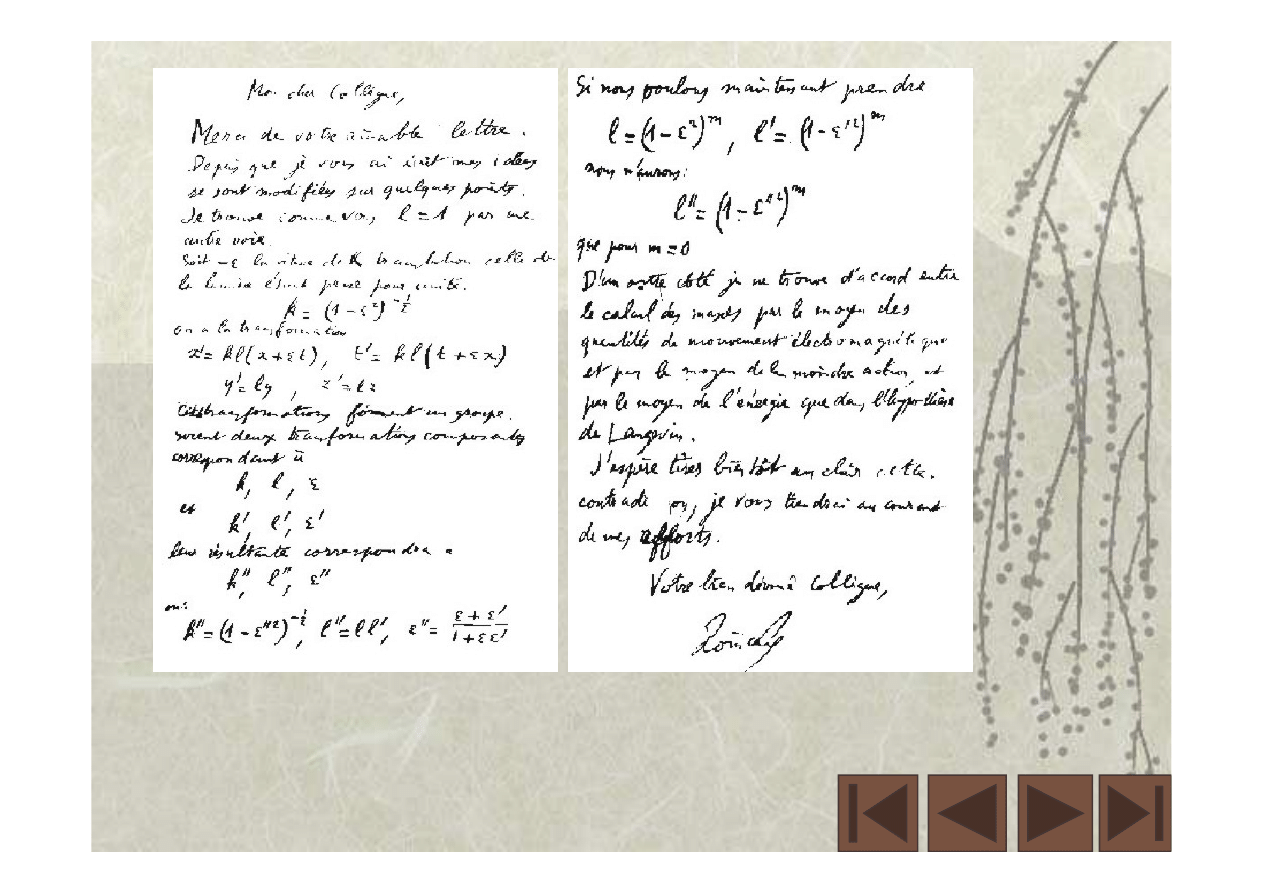 Mon cher Collègue,
Merci de votre aimable lettre.
Depuis que je vous ai écrit mes idées
se sont modifiées sur quelques points.
Je trouve comme vous l = 1 par une
autre voie.
Soit -ε la vitesse de la translation celle de
la lumière étant prise pour unité.
k = (1 - ε²)^{-1/2}
on a la transformation
x' = kl(x + εt), t' = kl(t + εx)
y' = ly , z' = lz
Ces transformations forment un groupe.
Soient deux transformations composantes
correspondant à
k, l, ε
et
k', l', ε'
leur résultante correspondra à
k'', l'', ε''
où:
k'' = (1 - ε''²)^{-1/2}, l'' = ll', ε'' = (ε + ε')/(1 + εε')
Si nous voulons maintenant prendre
l = (1 - ε²)^m, l' = (1 - ε'²)^m
nous n'aurons:
l'' = (1 - ε''²)^m
que pour m = 0
D'un autre côté je ne trouve d'accord entre
le calcul des masses par le moyen des
quantités de mouvement électromagnétique
et par le moyen de la moindre action, et
par le moyen de l'énergie que dans l'hypothèse
de Langevin.
J'espère tirer bientôt au clair cette
je vous tiendrai au courant
de mes efforts.
Votre bien dévoué collègue,
Poincaré